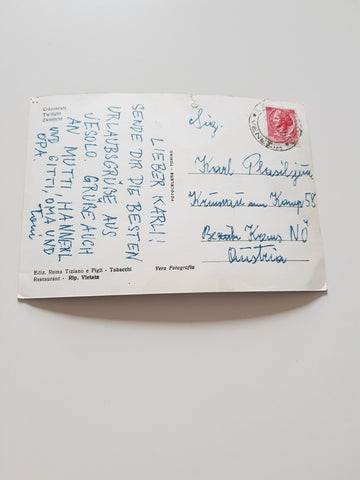 Crepuscolo
Twilight
Zwielicht
LIEBER KARLI!
SENDE DIR DIE BESTEN
URLAUBSGRÜSSE AUS
JESOLO. GRÜSSE AUCH
AN MUTTI, HANNERL
UND GITTI, OMA UND
OPA
Toni
FOTOCELERE - TORINO
Ediz. Roma Tiziano e Figli - Tabacchi
Restaurant - Rip. Vietata
Vera Fotografia
Sig.
Karl
am Kamp 58
Krems NÖ
Austria